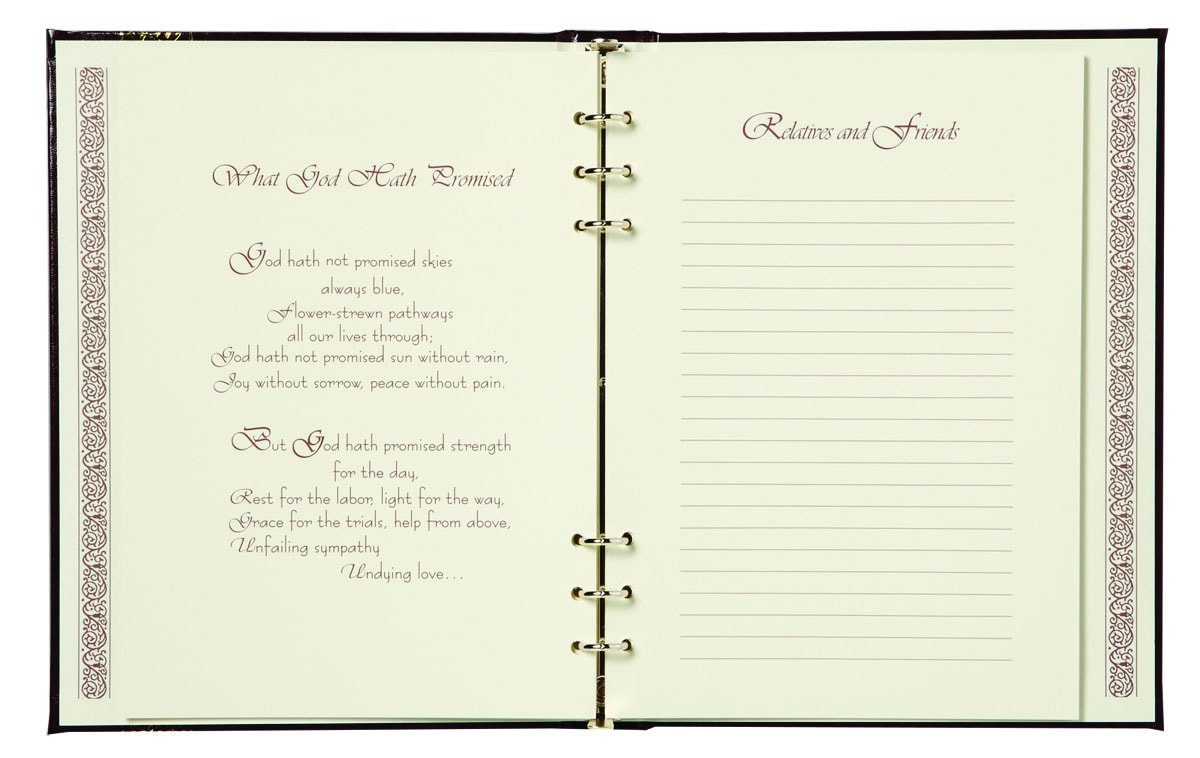 What God Hath Promised
God hath not promised skies
always blue,
Flower-strewn pathways
all our lives through;
God hath not promised sun without rain,
Joy without sorrow, peace without pain.
But God hath promised strength
for the day,
Rest for the labor, light for the way,
Grace for the trials, help from above,
Unfailing sympathy
Undying love...
Relatives and Friends